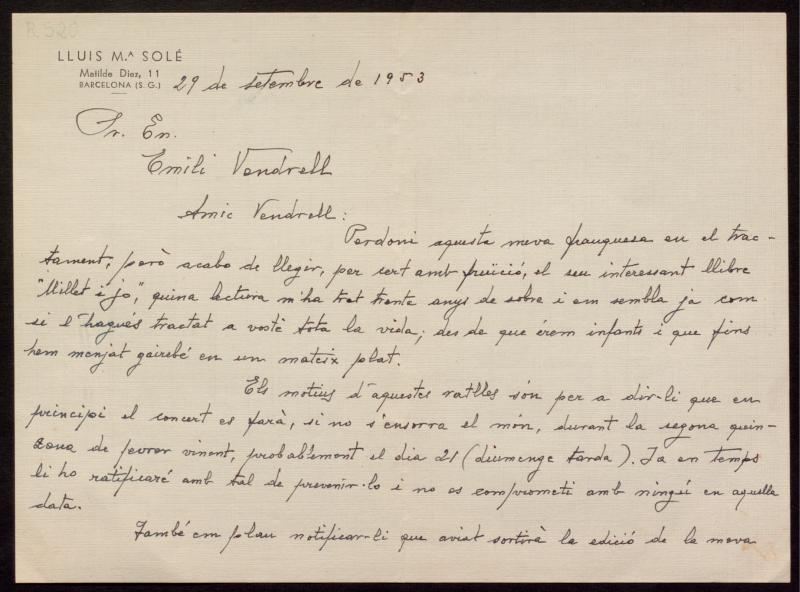 R 520
LLUIS M.ª SOLÉ
Matilde Diez, 11
BARCELONA (S. G.)
29 de setembre de 1953
Sr. En.
Emili Vendrell
Amic Vendrell:
Perdoni aquesta meva franquesa en el trac-
tament, però acabo de llegir, per cert amb fruïció, el seu interessant llibre
"Millet i jo", quina lectura m'ha tret trenta anys de sobre i em sembla ja com
si l'hagués tractat a vostè tota la vida; des de que érem infants i que fins
hem menjat gairebé en un mateix plat.
Els motius d'aquestes ratlles són per a dir-li que en
principi el concert es farà, si no s'ensorra el món, durant la segona quin-
zena de febrer vinent, probablement el dia 21 (diumenge tarda). Ja en temps
li ho ratificaré amb tal de prevenir-lo i no es comprometi amb ningú en aquella
data.
També em plau notificar-li que aviat sortirà la edició de la meva